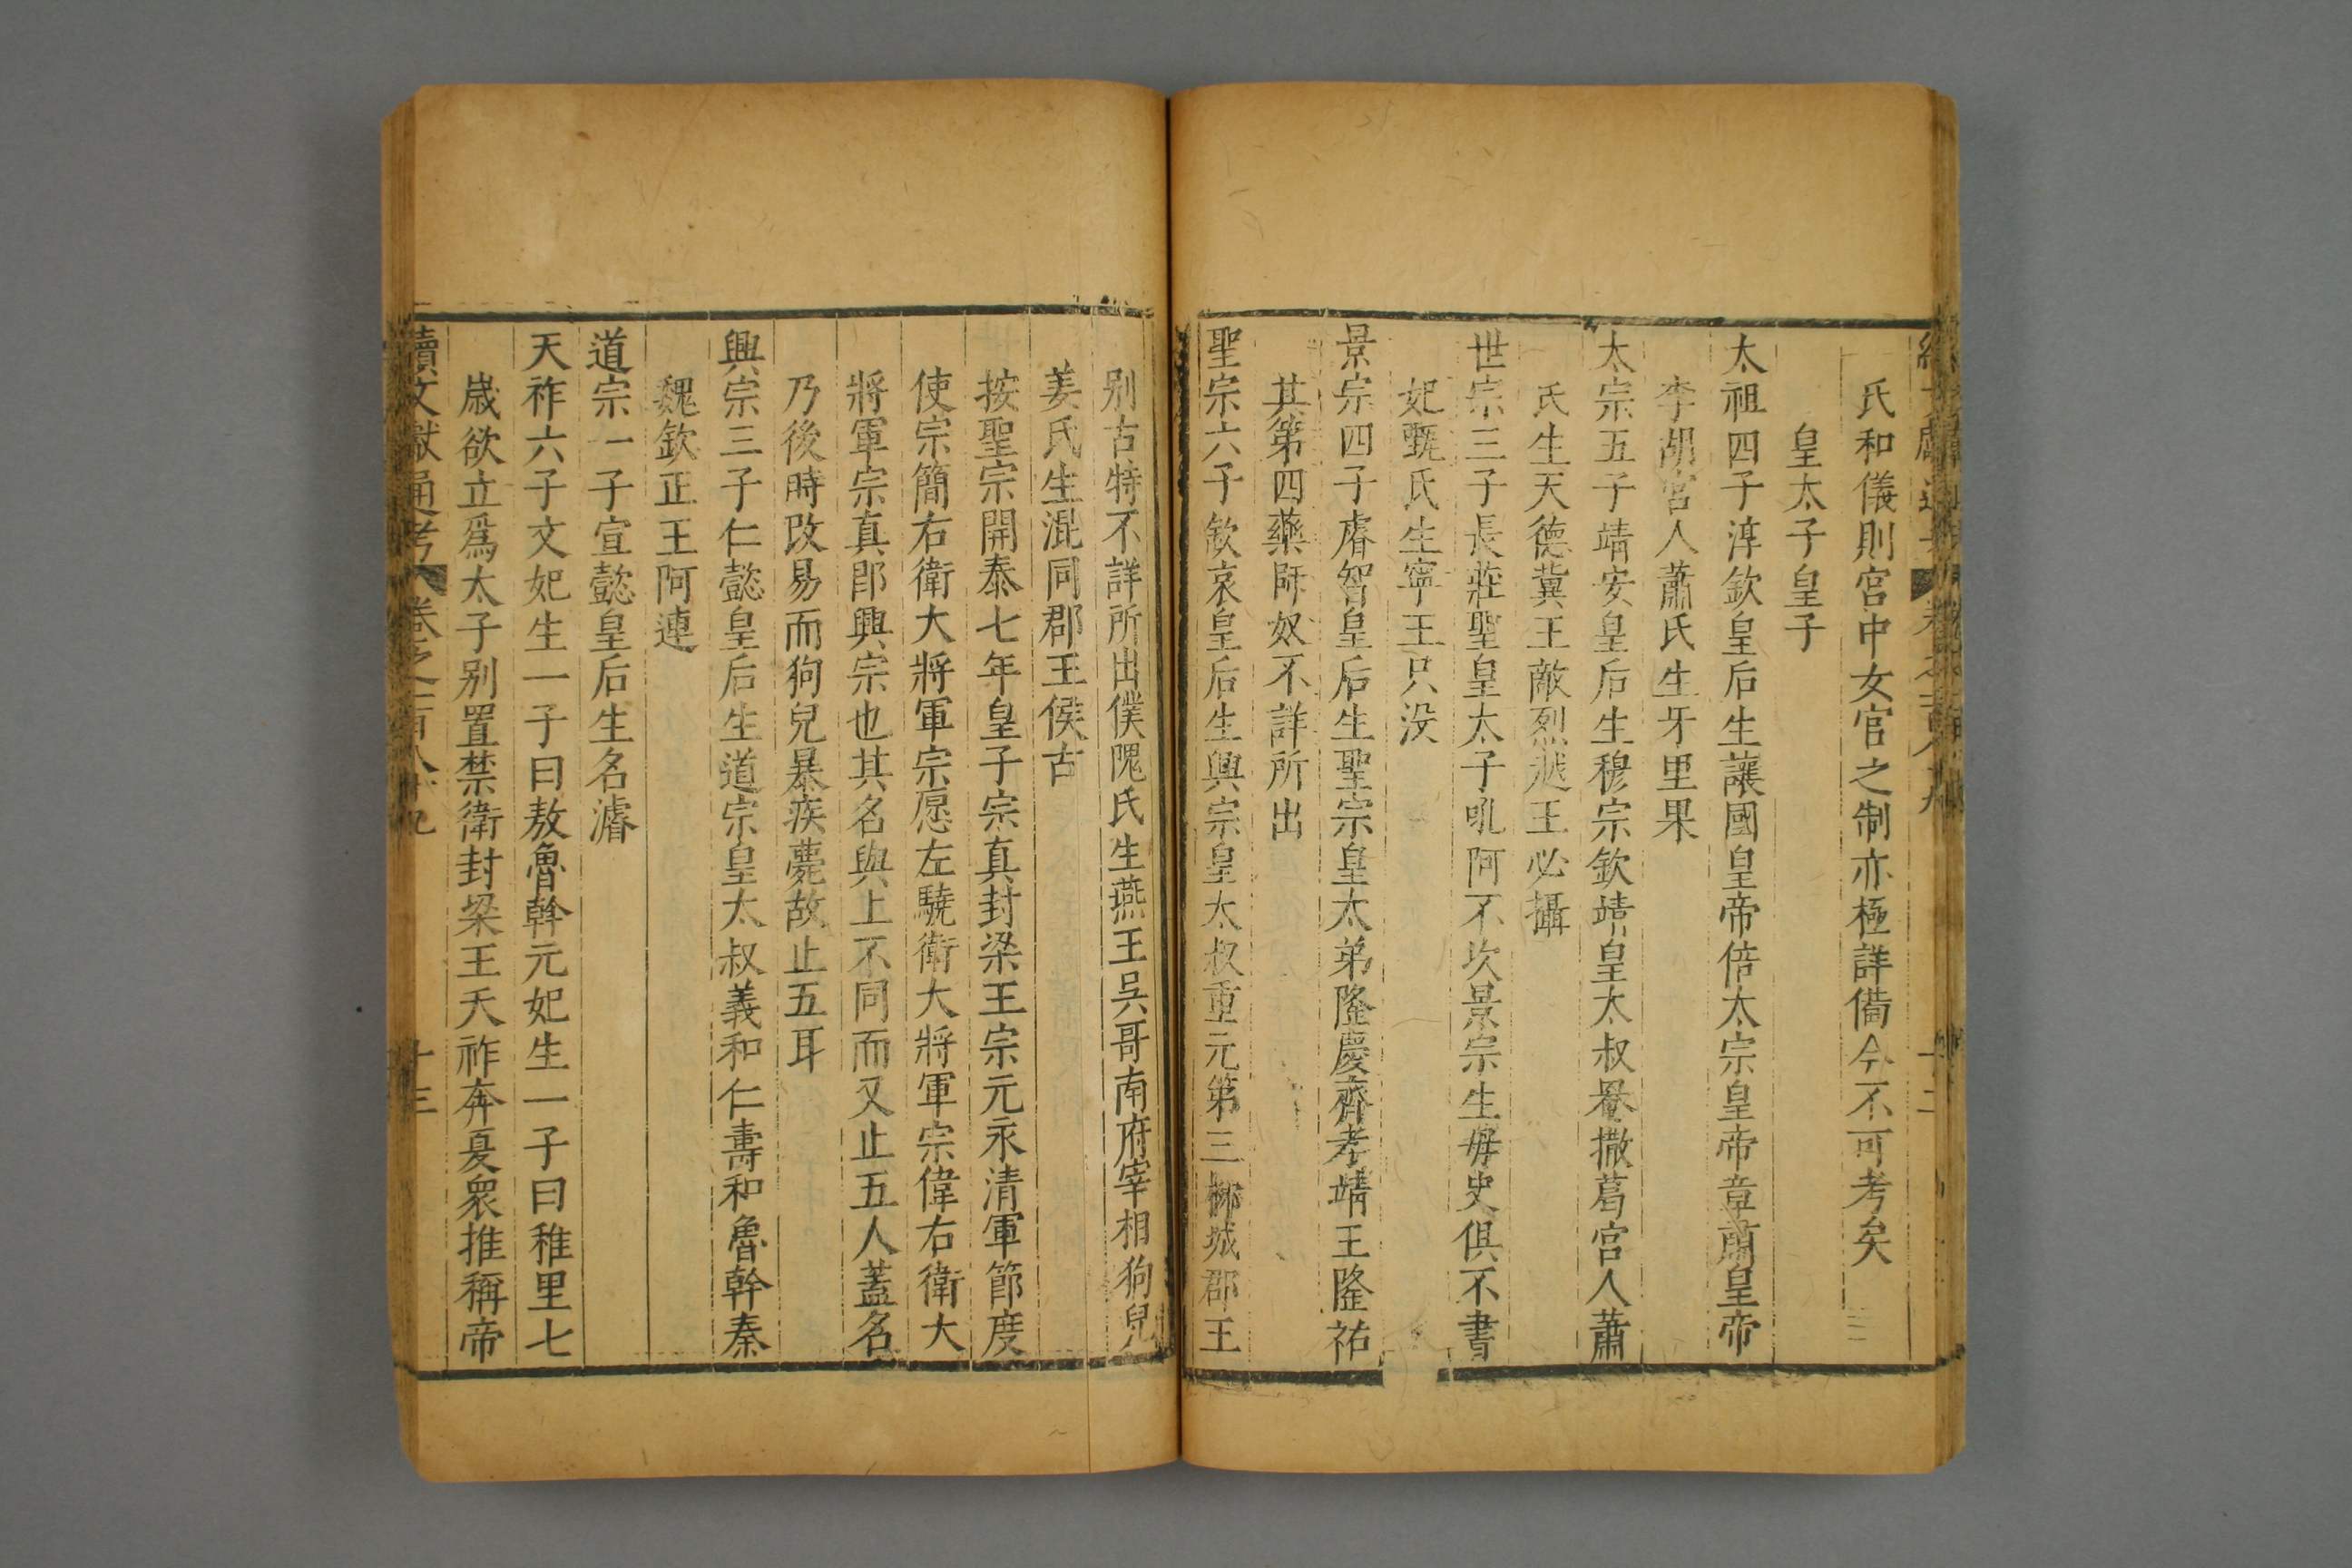 氏和儀則宮中女官之制亦極詳備今不可考矣
皇太子皇子
太祖四子淳欽皇后生讓國皇帝倍太宗皇帝章肅皇帝
李胡宮人蕭氏生牙里果
太宗五子靖安皇后生穆宗欽靖皇太叔罨撒葛宮人蕭
氏生天德兾王敵烈越王必攝
世宗三子長莊聖皇太子吼阿不次景宗生毋史俱不書
妃甄氏生寧王只没
景宗四子睿智皇后生聖宗皇太弟隆慶齊孝靖王隆祐
其第四藥師奴不詳所出
聖宗六子欽哀皇后生興宗皇太叔重元第三柳城郡王
别古特不詳所出僕隗氏生燕王吳哥南府宰相狗兒
姜氏生混同郡王侯古
按聖宗開泰七年皇子宗真封梁王宗元永清軍節度
使宗簡右衛大將軍宗愿左驍衛大將軍宗偉右衛大
將軍宗真即興宗也其名與上不同而又止五人蓋名
乃後時改易而狗兒暴疾薨故止五耳
興宗三子仁懿皇后生道宗皇太叔義和仁壽和魯斡秦
魏欽正王阿連
道宗一子宣懿皇后生名濬
天祚六子文妃生一子曰敖魯斡元妃生一子曰稚里七
歲欲立爲太子别置禁衛封梁王天祚奔夏衆推稱帝
續文獻通考 卷之一百八十九 十三